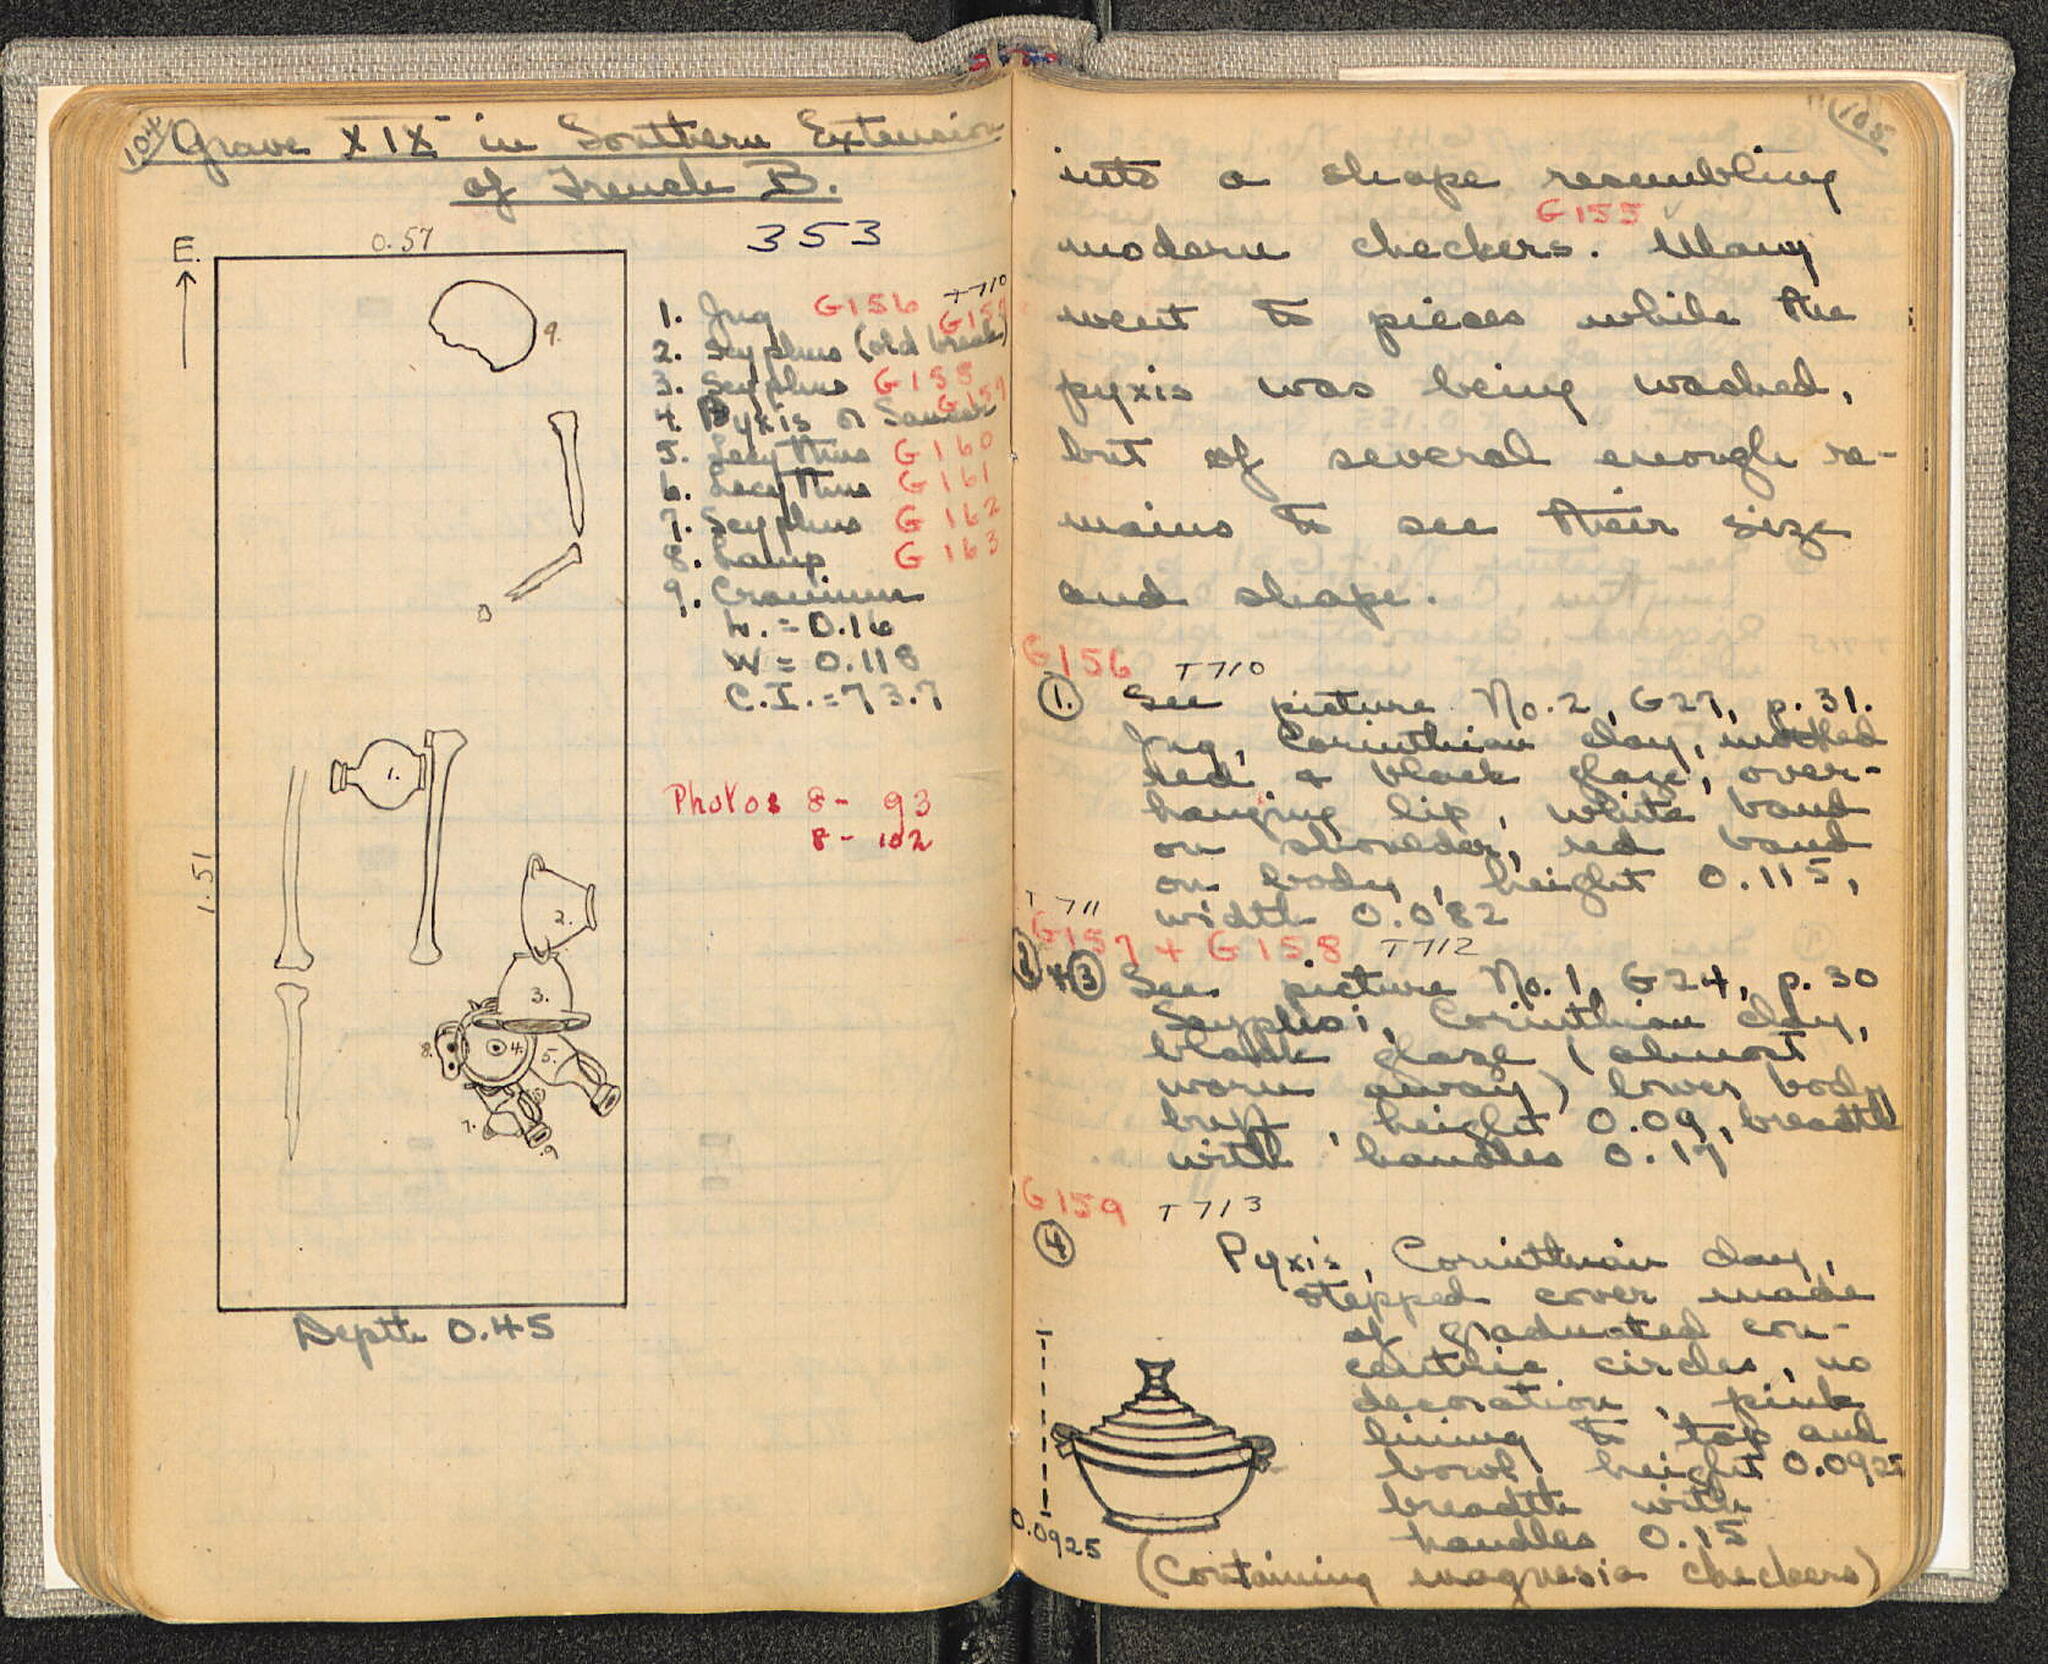 104
Grave XIX in Southern Extension
of Trench B.
353
E.
0.57
1.51
9.
1.
2.
3.
4.
5.
8.
7.
6.
Depth 0.45
1. Jug G156 T710
2. Scyphus (old break)
3. Scyphus G158
4. Pyxis or Saucer G159
5. Lecythus G160
6. Lecythus G161
7. Scyphus G162
8. Lamp G163
9. Cranium
L. = 0.16
W = 0.118
C.I. = 73.7
Photos 8- 93
8- 102
105
into a shape resembling
G155
modern checkers. Many
went to pieces while the
pyxis was being washed,
but of several enough re-
mains to see their size
and shape.
G156 T710
1. See picture No. 2, G27, p. 31.
Jug, Corinthian clay, mottled
red & black glaze, over-
hanging lip, white band
on shoulder, red band
on body, height 0.115,
width 0.082
T711
G157 + G158 T712
2 + 3 See picture No. 1, G24, p. 30
Scyphoi, Corinthian clay,
black glaze (almost
worn away) lower body
buff, height 0.09, breadth
with handles 0.17
G159 T713
4 Pyxis, Corinthian clay,
stepped cover made
of graduated con-
centric circles, no
decoration, pink
lining to top and
bowl, height 0.0925
breadth with
handles 0.15
0.0925
(Containing magnesia checkers)